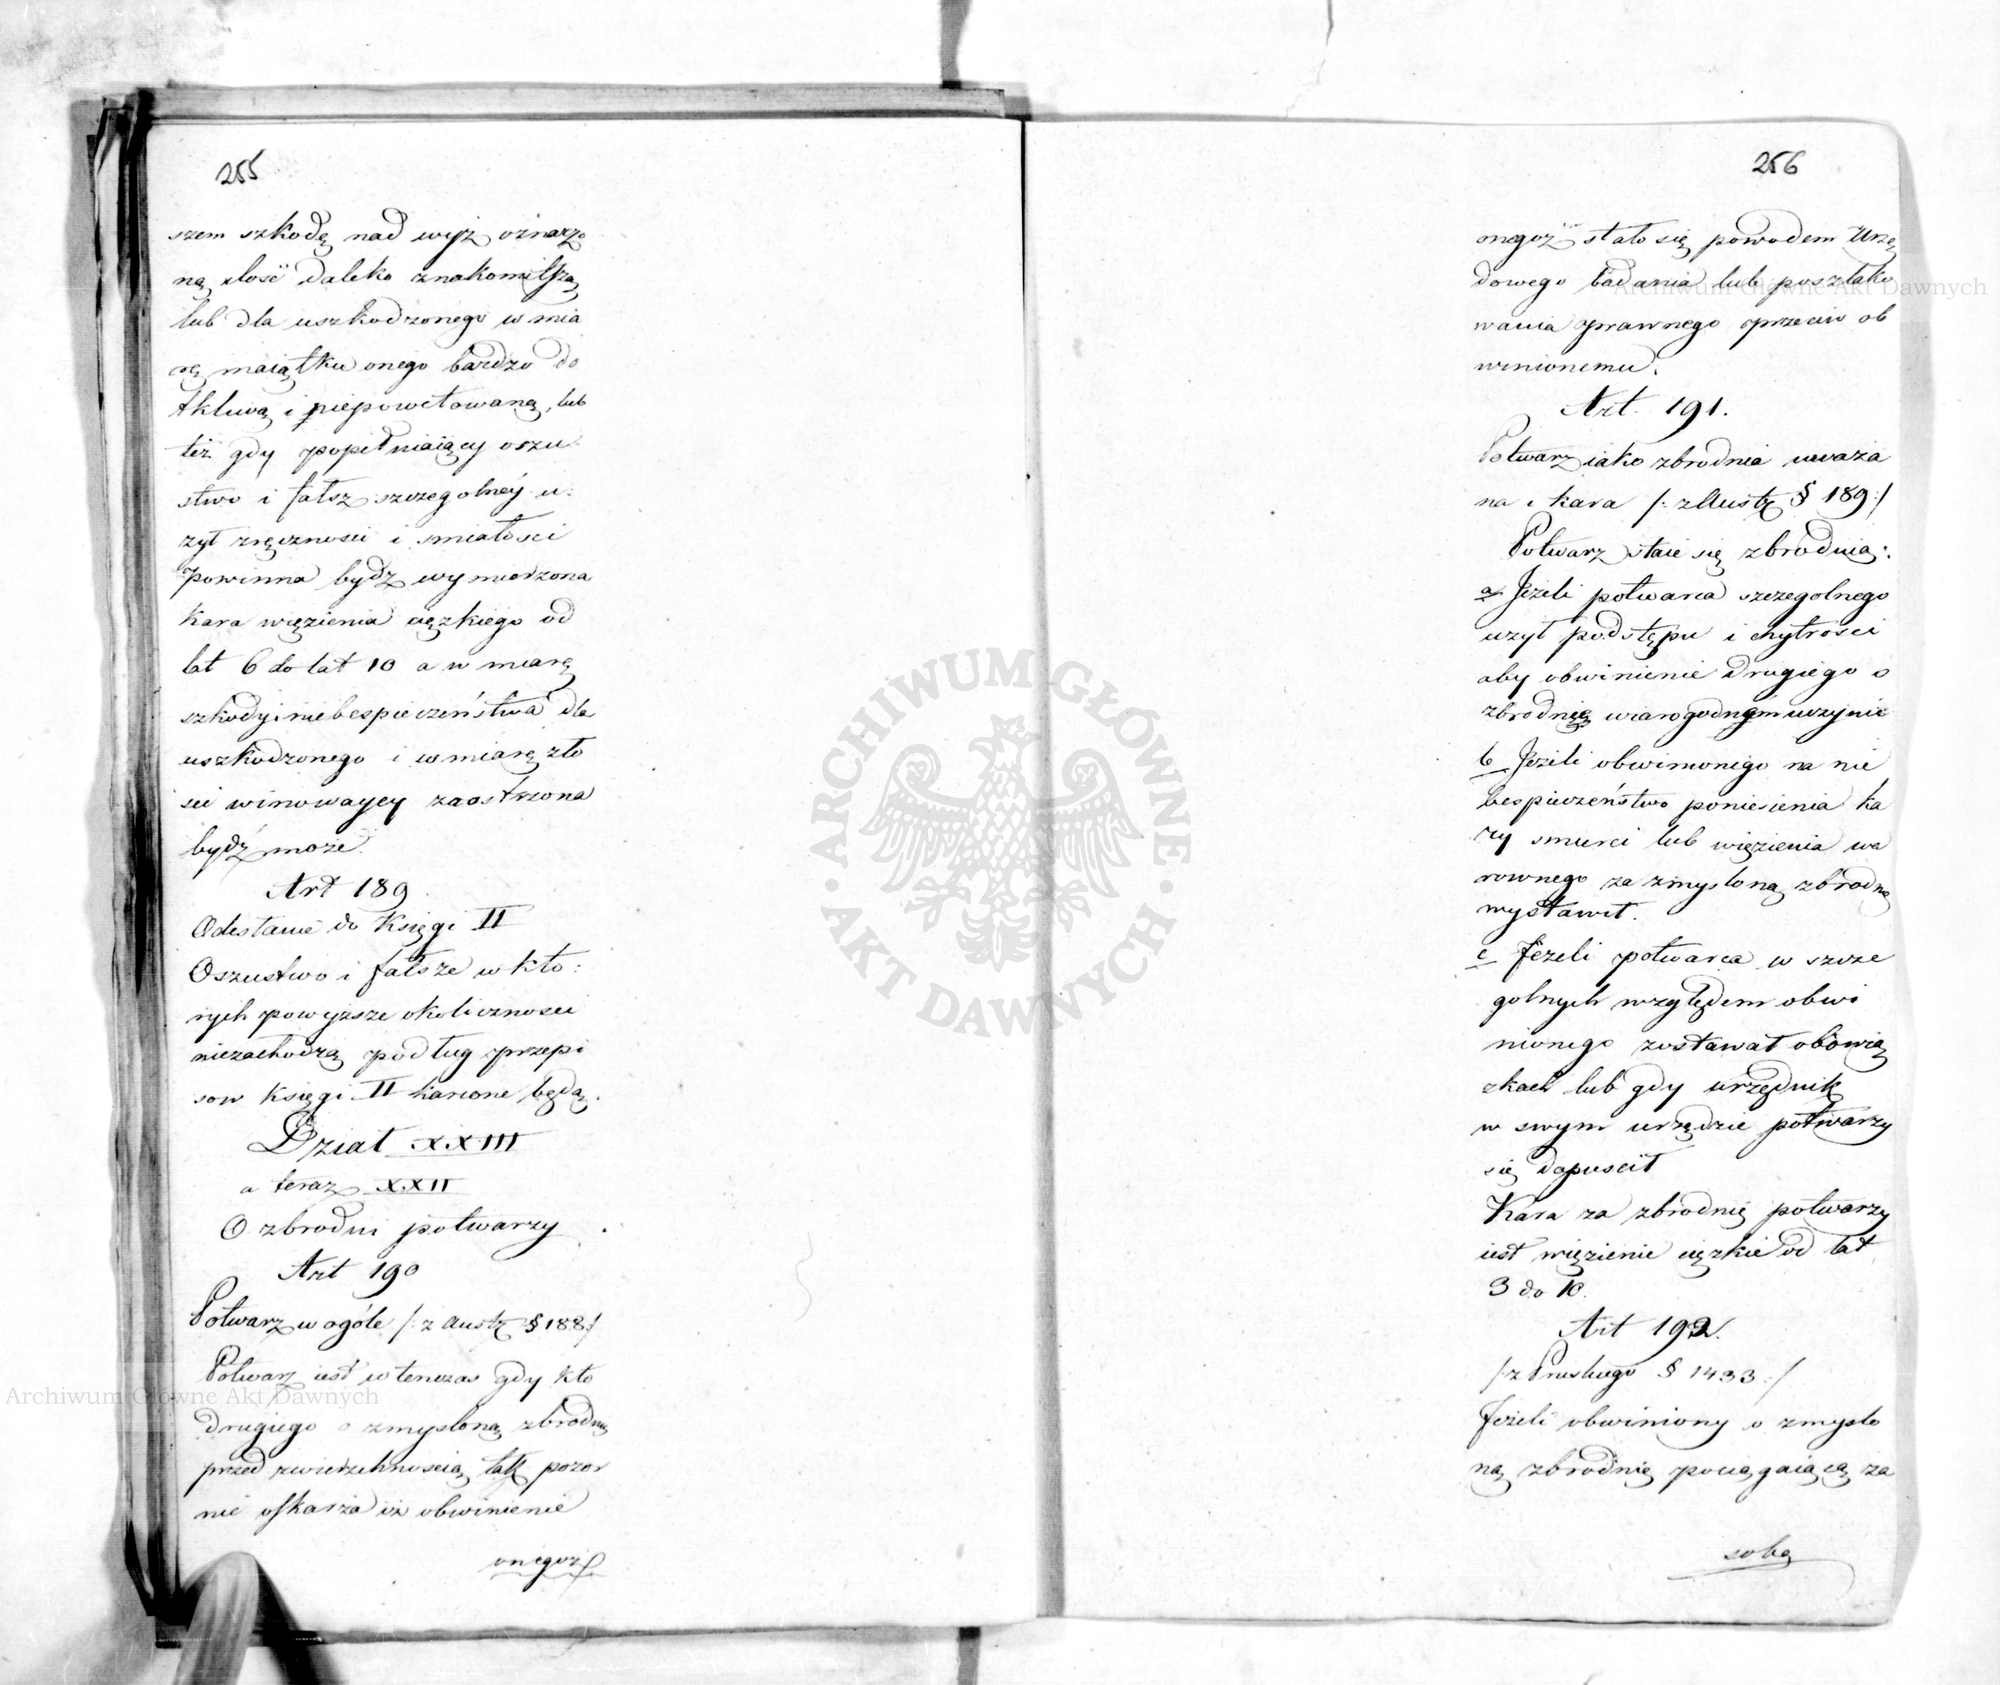 255
szem szkodę nad wyż oznaczo
ną ilość daleko znakomitszą
lub dla uszkodzonego w mia
rę maiątku onego bardzo do
tkliwą i niepowetowaną, lub
też gdy popełniaiący oszu
stwo i fałsz szczegolney u:
zył zręcznosci i smiałosci
powinna bydz wymierzona
kara więzienia cięzkiego od
lat 6 do lat 10 a w miarę
szkody i niebespieczeństwa dla
uszkodzonego i w miarę zło
sci winowaycy zaostrzona
bydź może.
Art 189.
Odesłanie do Księgi II
Oszustwo i fałsze w kto:
rych powyższe okolicznosci
niezachodzą podług przepi
sow Księgi II karione będą.
Dział XXIII
a teraz XXII
O zbrodni potwarzy
Art 190
Potwarz w ogóle /: z Austr § 188 :/
Potwarz iest w tenczas gdy kto
drugiego o zmysloną zbrodnię
przed zwierzchnoscią tak pozor
nie oskarża iż obwinienie
onegoż
256
onegoż stało się powodem Urzę
dowego badania lub poszlako
wania prawnego przeciw ob
winionemu.
Art. 191.
Potwarz iako zbrodnia uważa
na i kara /: z Austr § 189 :/
Potwarz staie się zbrodnią:
a Jeżeli potwarca szczegolnego
uzył podstępu i chytrosci
aby obwinienie drugiego o
zbrodnię wiarogodnym uczynić
b Jeżeli obwinionego na nie
bespieczeństwo poniesienia ka
ry smierci lub więzienia wa
rownego za zmysloną zbrodnię
wystawił.
c Jeżeli potwarca w szcze
golnych względem obwi
nionego zostawał obowią
zkach lub gdy urzędnik
w swym urzędzie potwarzy
się dopuscił
Kara za zbrodnię potwarzy
iest więzienie cięzkie od lat
3 do 10.
Art 192.
/: z Pruskiego § 1433 :/
Jeżeli obwiniony o zmyslo
ną zbrodnię pociągaiącą za
sobą
ARCHIWUM GŁÓWNE
AKT DAWNYCH
Archiwum Główne Akt Dawnych
Archiwum Główne Akt Dawnych